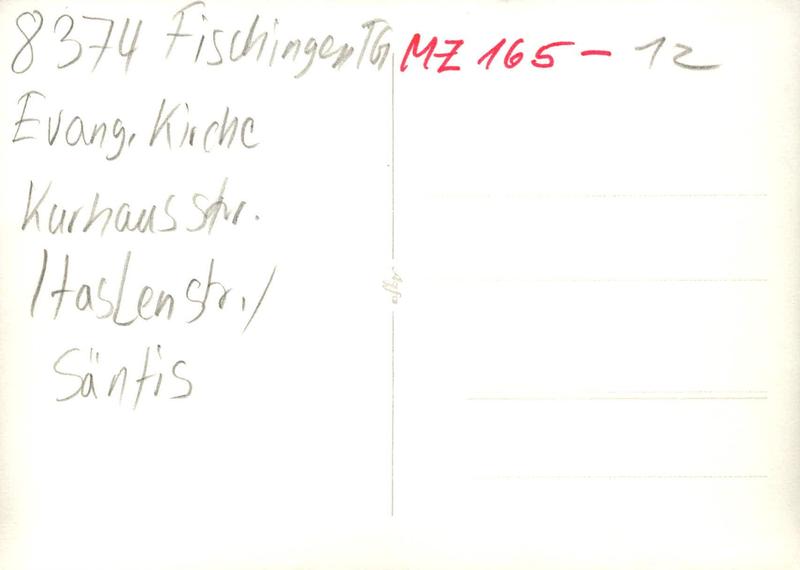 8374 Fischingen TG MZ 165 - 12
Evang. Kirche
Kurhausstr.
Itaslenstr./
Säntis